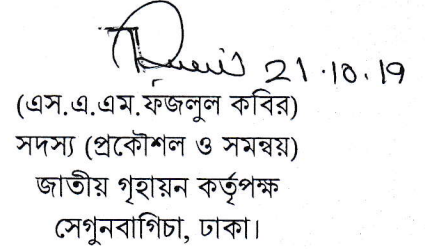 21.10.19
(এস.এ.এম.ফজলুল কবির)
সদস্য (প্রকৌশল ও সমন্বয়)
জাতীয় গৃহায়ন কর্তৃপক্ষ
সেগুনবাগিচা, ঢাকা।